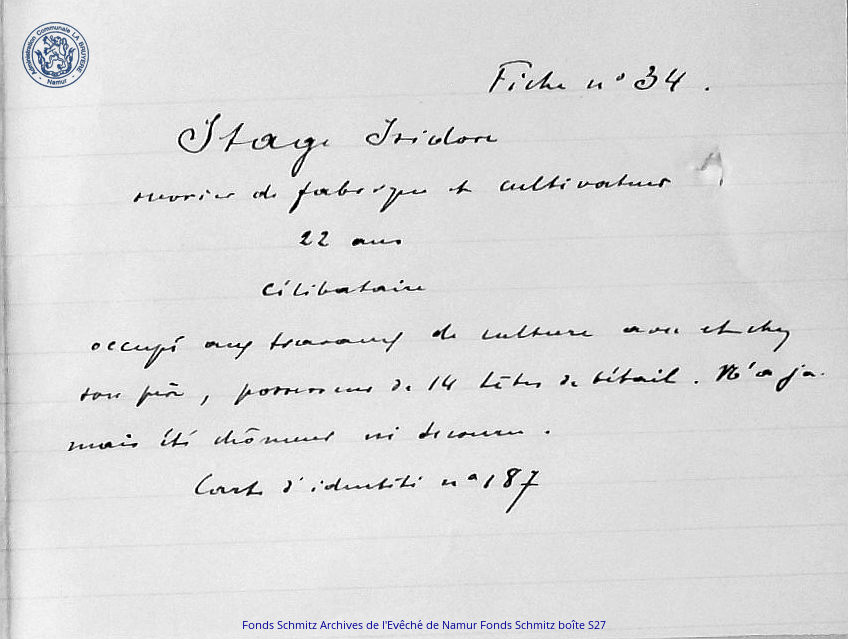 Administration Communale LA BRUYERE
Namur
Fiche n° 34.
Stage Isidore
ouvrier de fabrique et cultivateur
22 ans
célibataire
occupé aux travaux de culture avec et chez
son père, possesseur de 14 têtes de bétail. N'a ja-
mais été chômeur ni secouru.
Carte d'identité n° 187
Fonds Schmitz Archives de l'Evêché de Namur Fonds Schmitz boîte S27